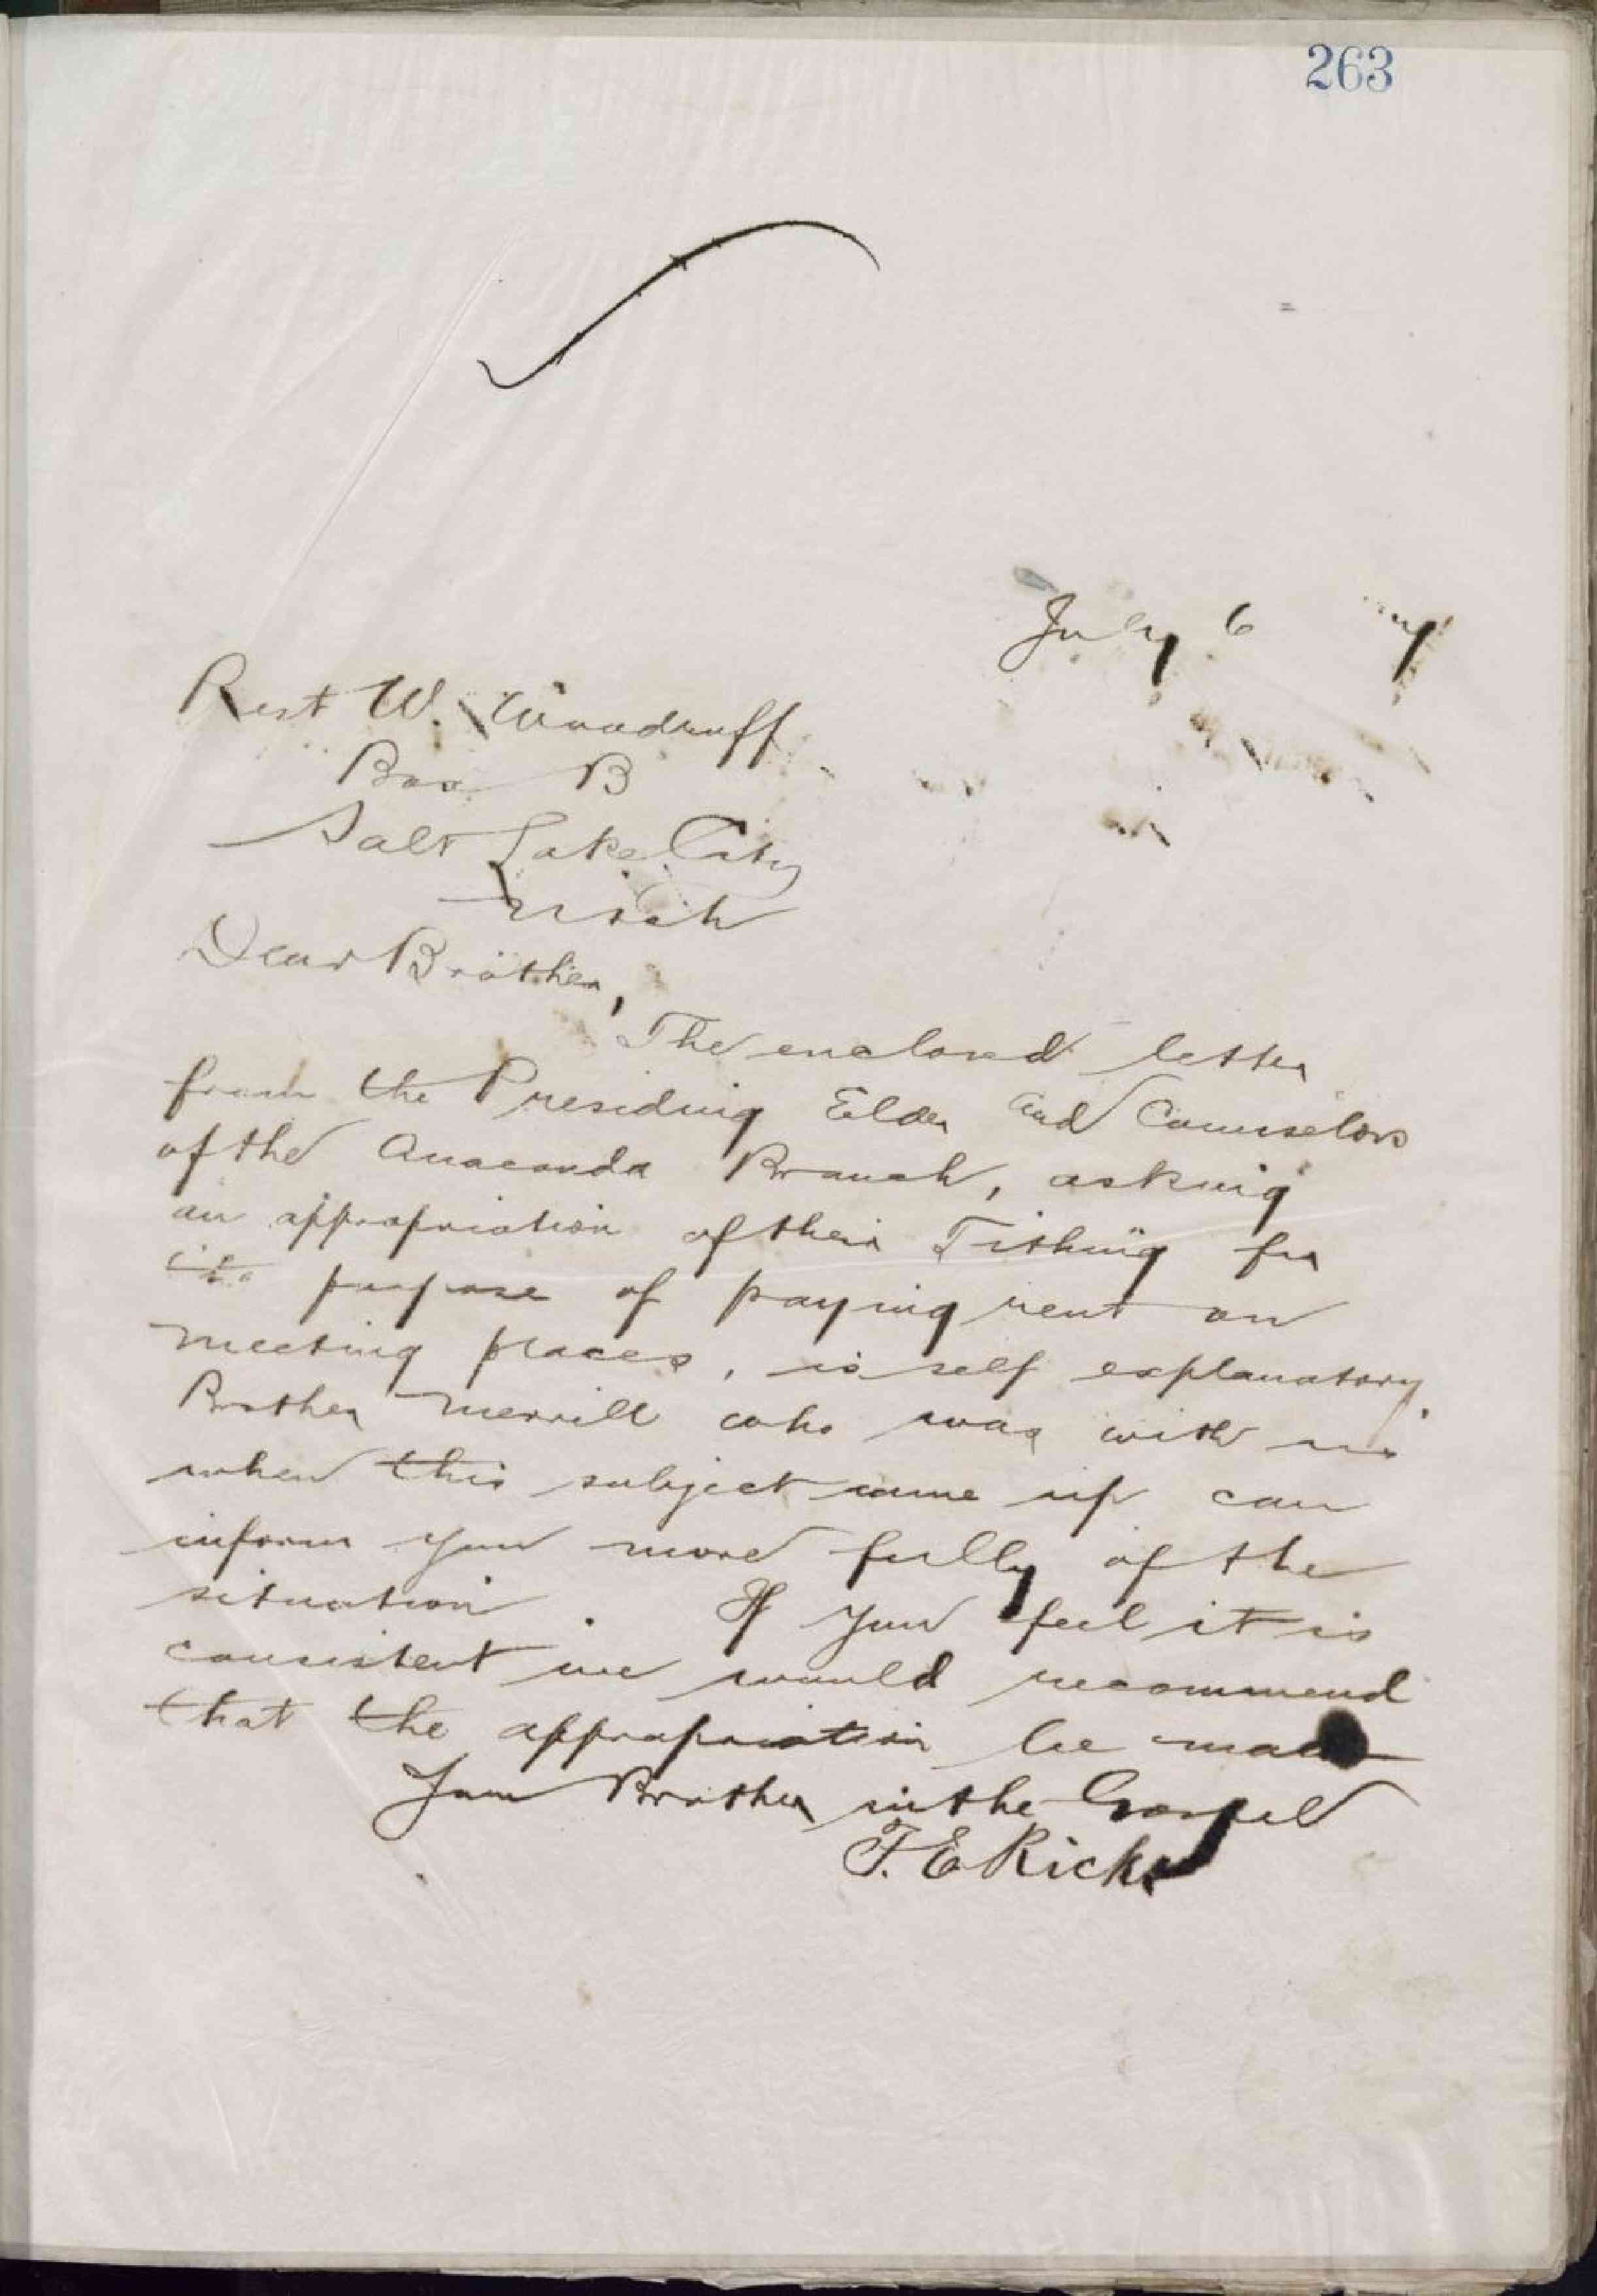 263
July 6
Prest W. Woodruff
Box B
Salt Lake City
Utah
Dear Brother,
The enclosed letter
from the Presiding Elder and Counselors
of the Anaconda Branch, asking
an appropriation of their Tithing for
the purpose of paying rent on
meeting places, is self explanatory.
Brother Merrill who was with us
when this subject came up can
inform you more fully of the
situation. If you feel it is
consistent we would recommend
that the appropriation be made
Your Brother in the Gospel
T. E Ricks